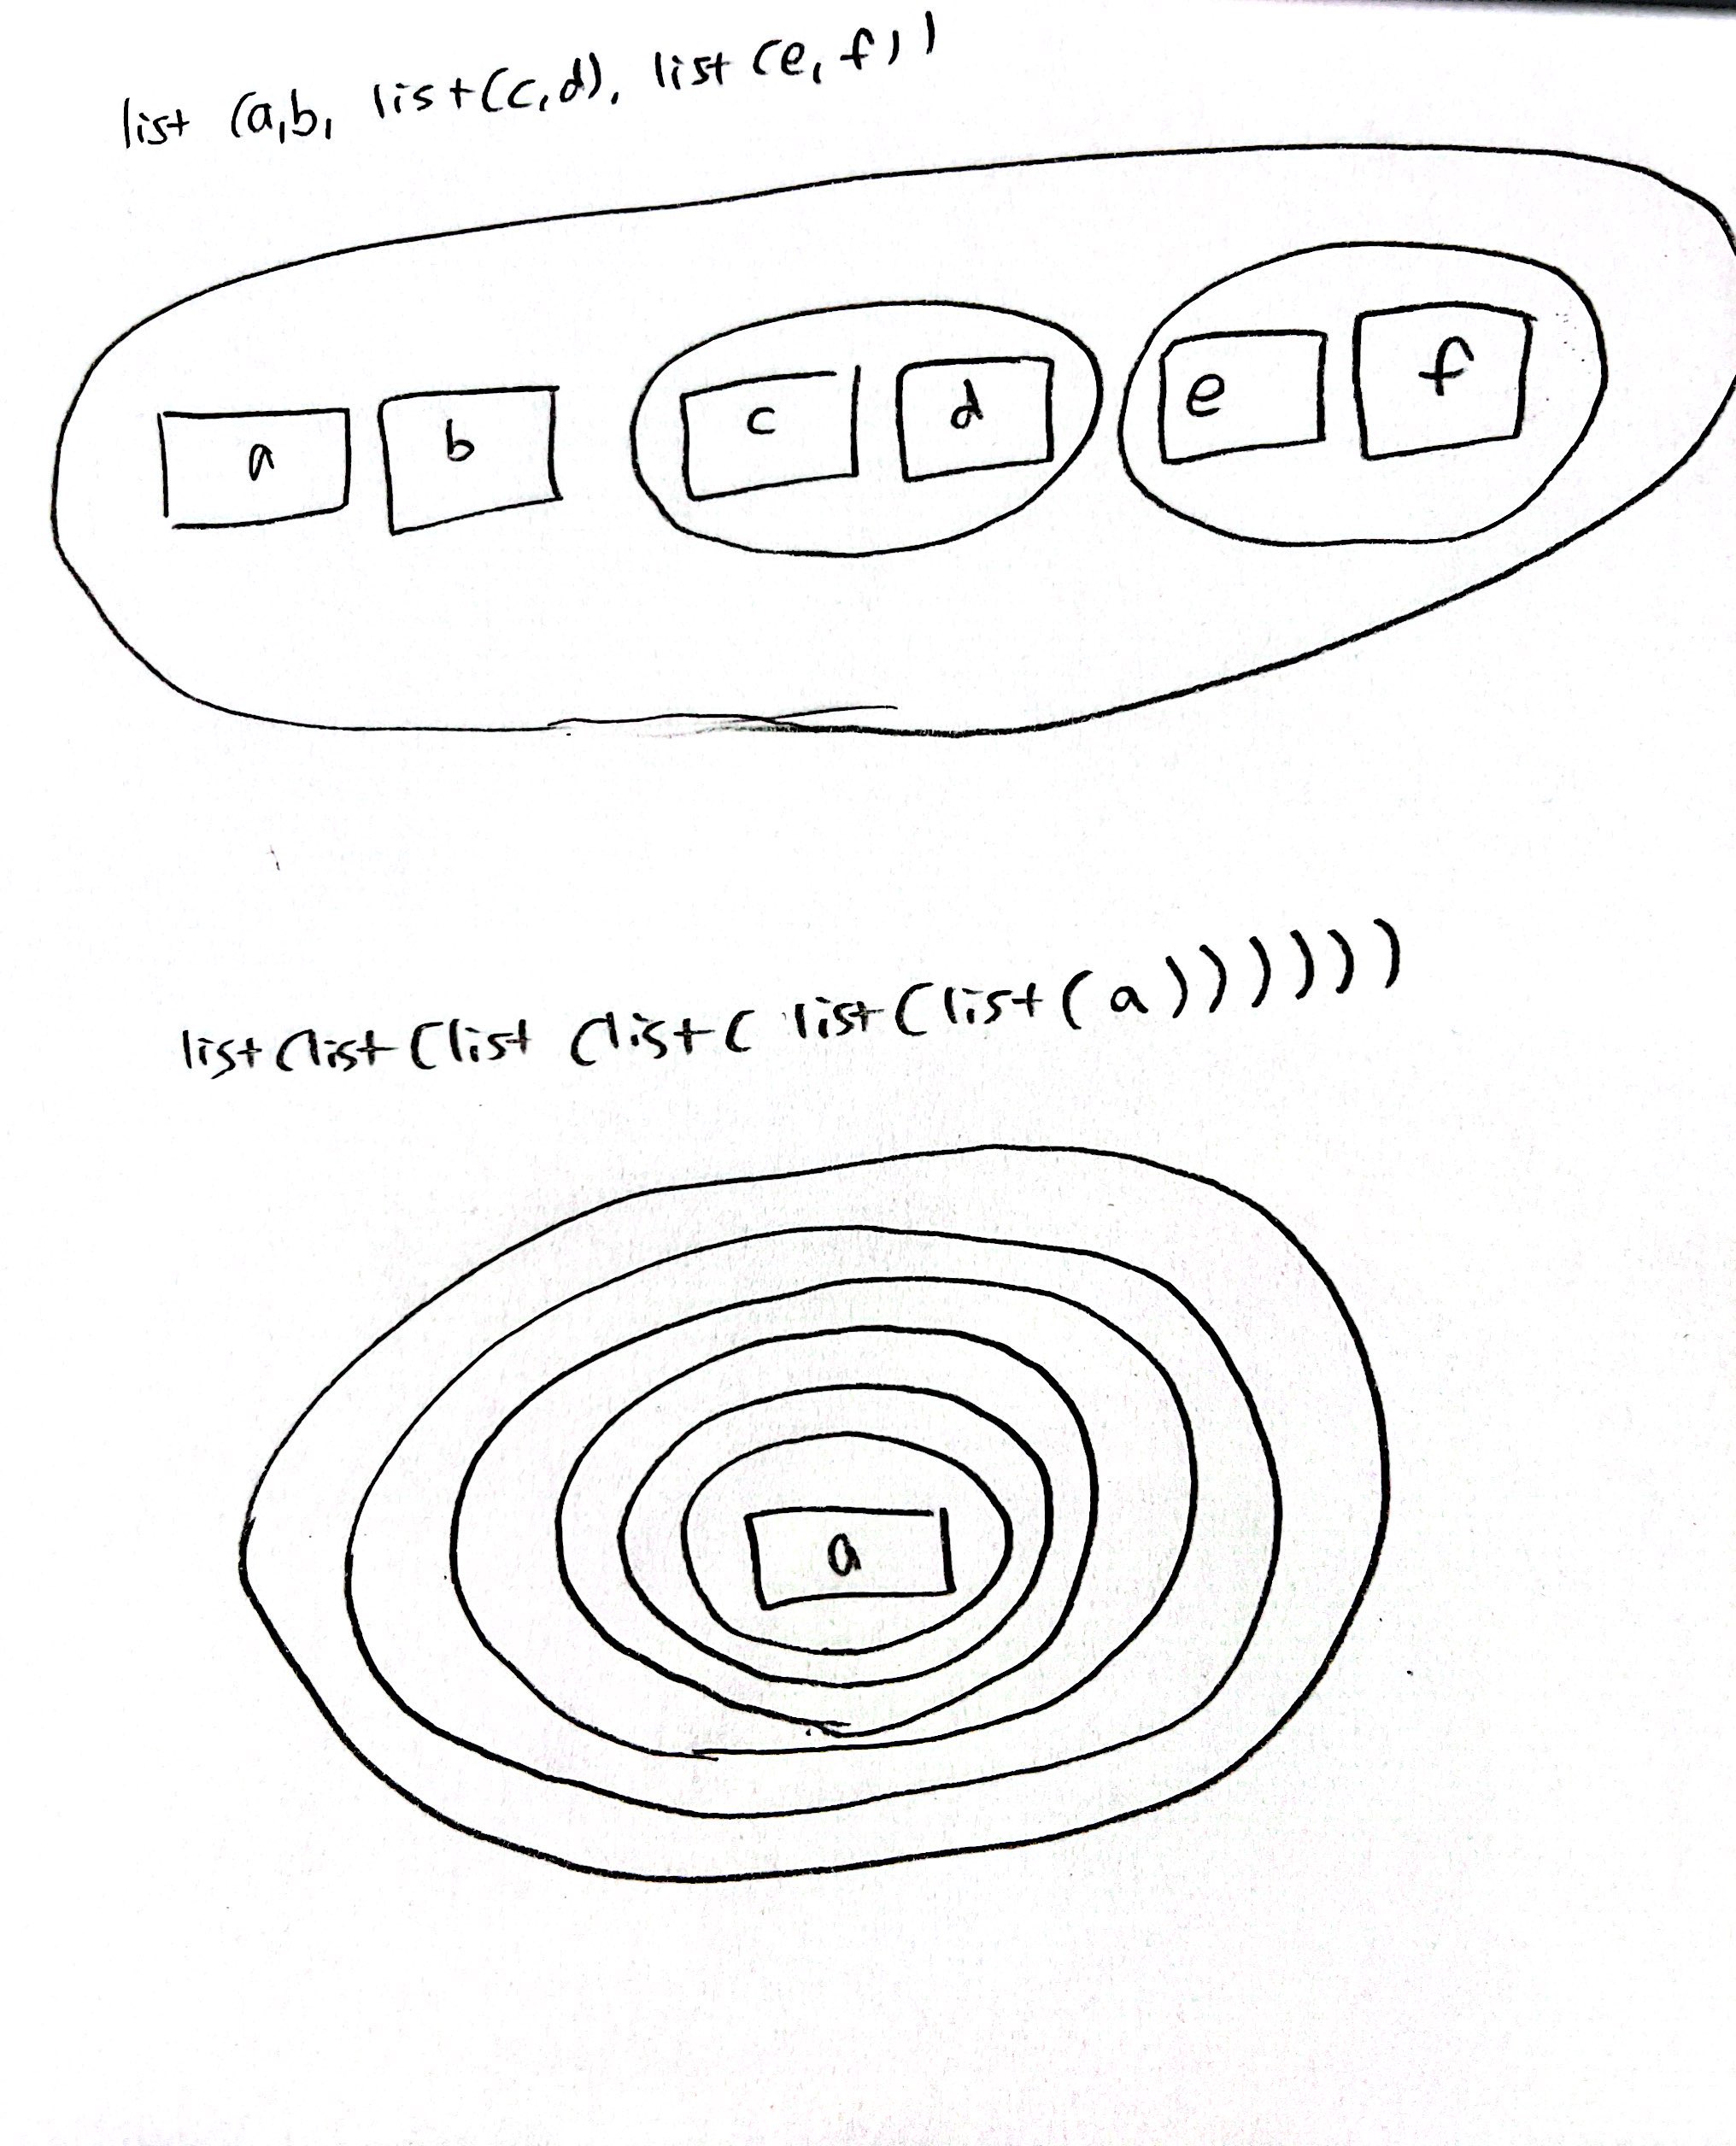 list (a,b, list(c,d), list (e, f))
a b c d e f
list(list(list (list( list(list(a))))))
a